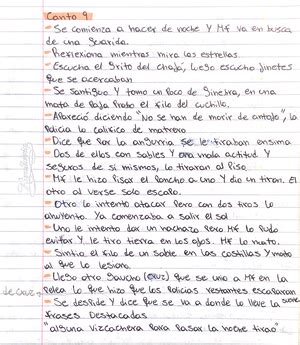 Canto 9
- Se comienza a hacer de noche Y MF va en busca
de una guarida.
- Reflexiona mientras mira las estrellas.
- Escucha el grito del chajá, luego escucho jinetes
que se acercaban
- Se santiguo Y tomo un poco de Ginebra, en una
mata de paja Probo el filo del cuchillo.
- Apareció diciendo "No se han de morir de antojo", la
Policia lo califico de matrero
- Dice que por la angurria se le tiraban ensima
- Dos de ellos con sables Y una mala actitud Y
seguros de si mismos, lo tiraron al Piso.
- MF le hizo Pisar el Poncho a uno Y dio un tiron. El
otro al verse solo escapo.
- Otro lo intento atacar Pero con dos tiros lo
ahuyento. Ya comenzaba a salir el sol
- Uno le intento dar un hachazo Pero MF lo Pudo
evitar Y le tiro tierra en los ojos. MF lo mato.
- Sintio el filo de un sable en las costillas Y mato
al que lo lesiono.
- Llego otro gaucho (CRUZ) que se unio a MF en la
Pelea lo que hizo que los Policias restantes escaparan
de Cruz → - Se despide Y dice que se va a donde lo lleve la suerte
frases Destacadas
"alguna vizcachera Para Pasar la noche tirao"